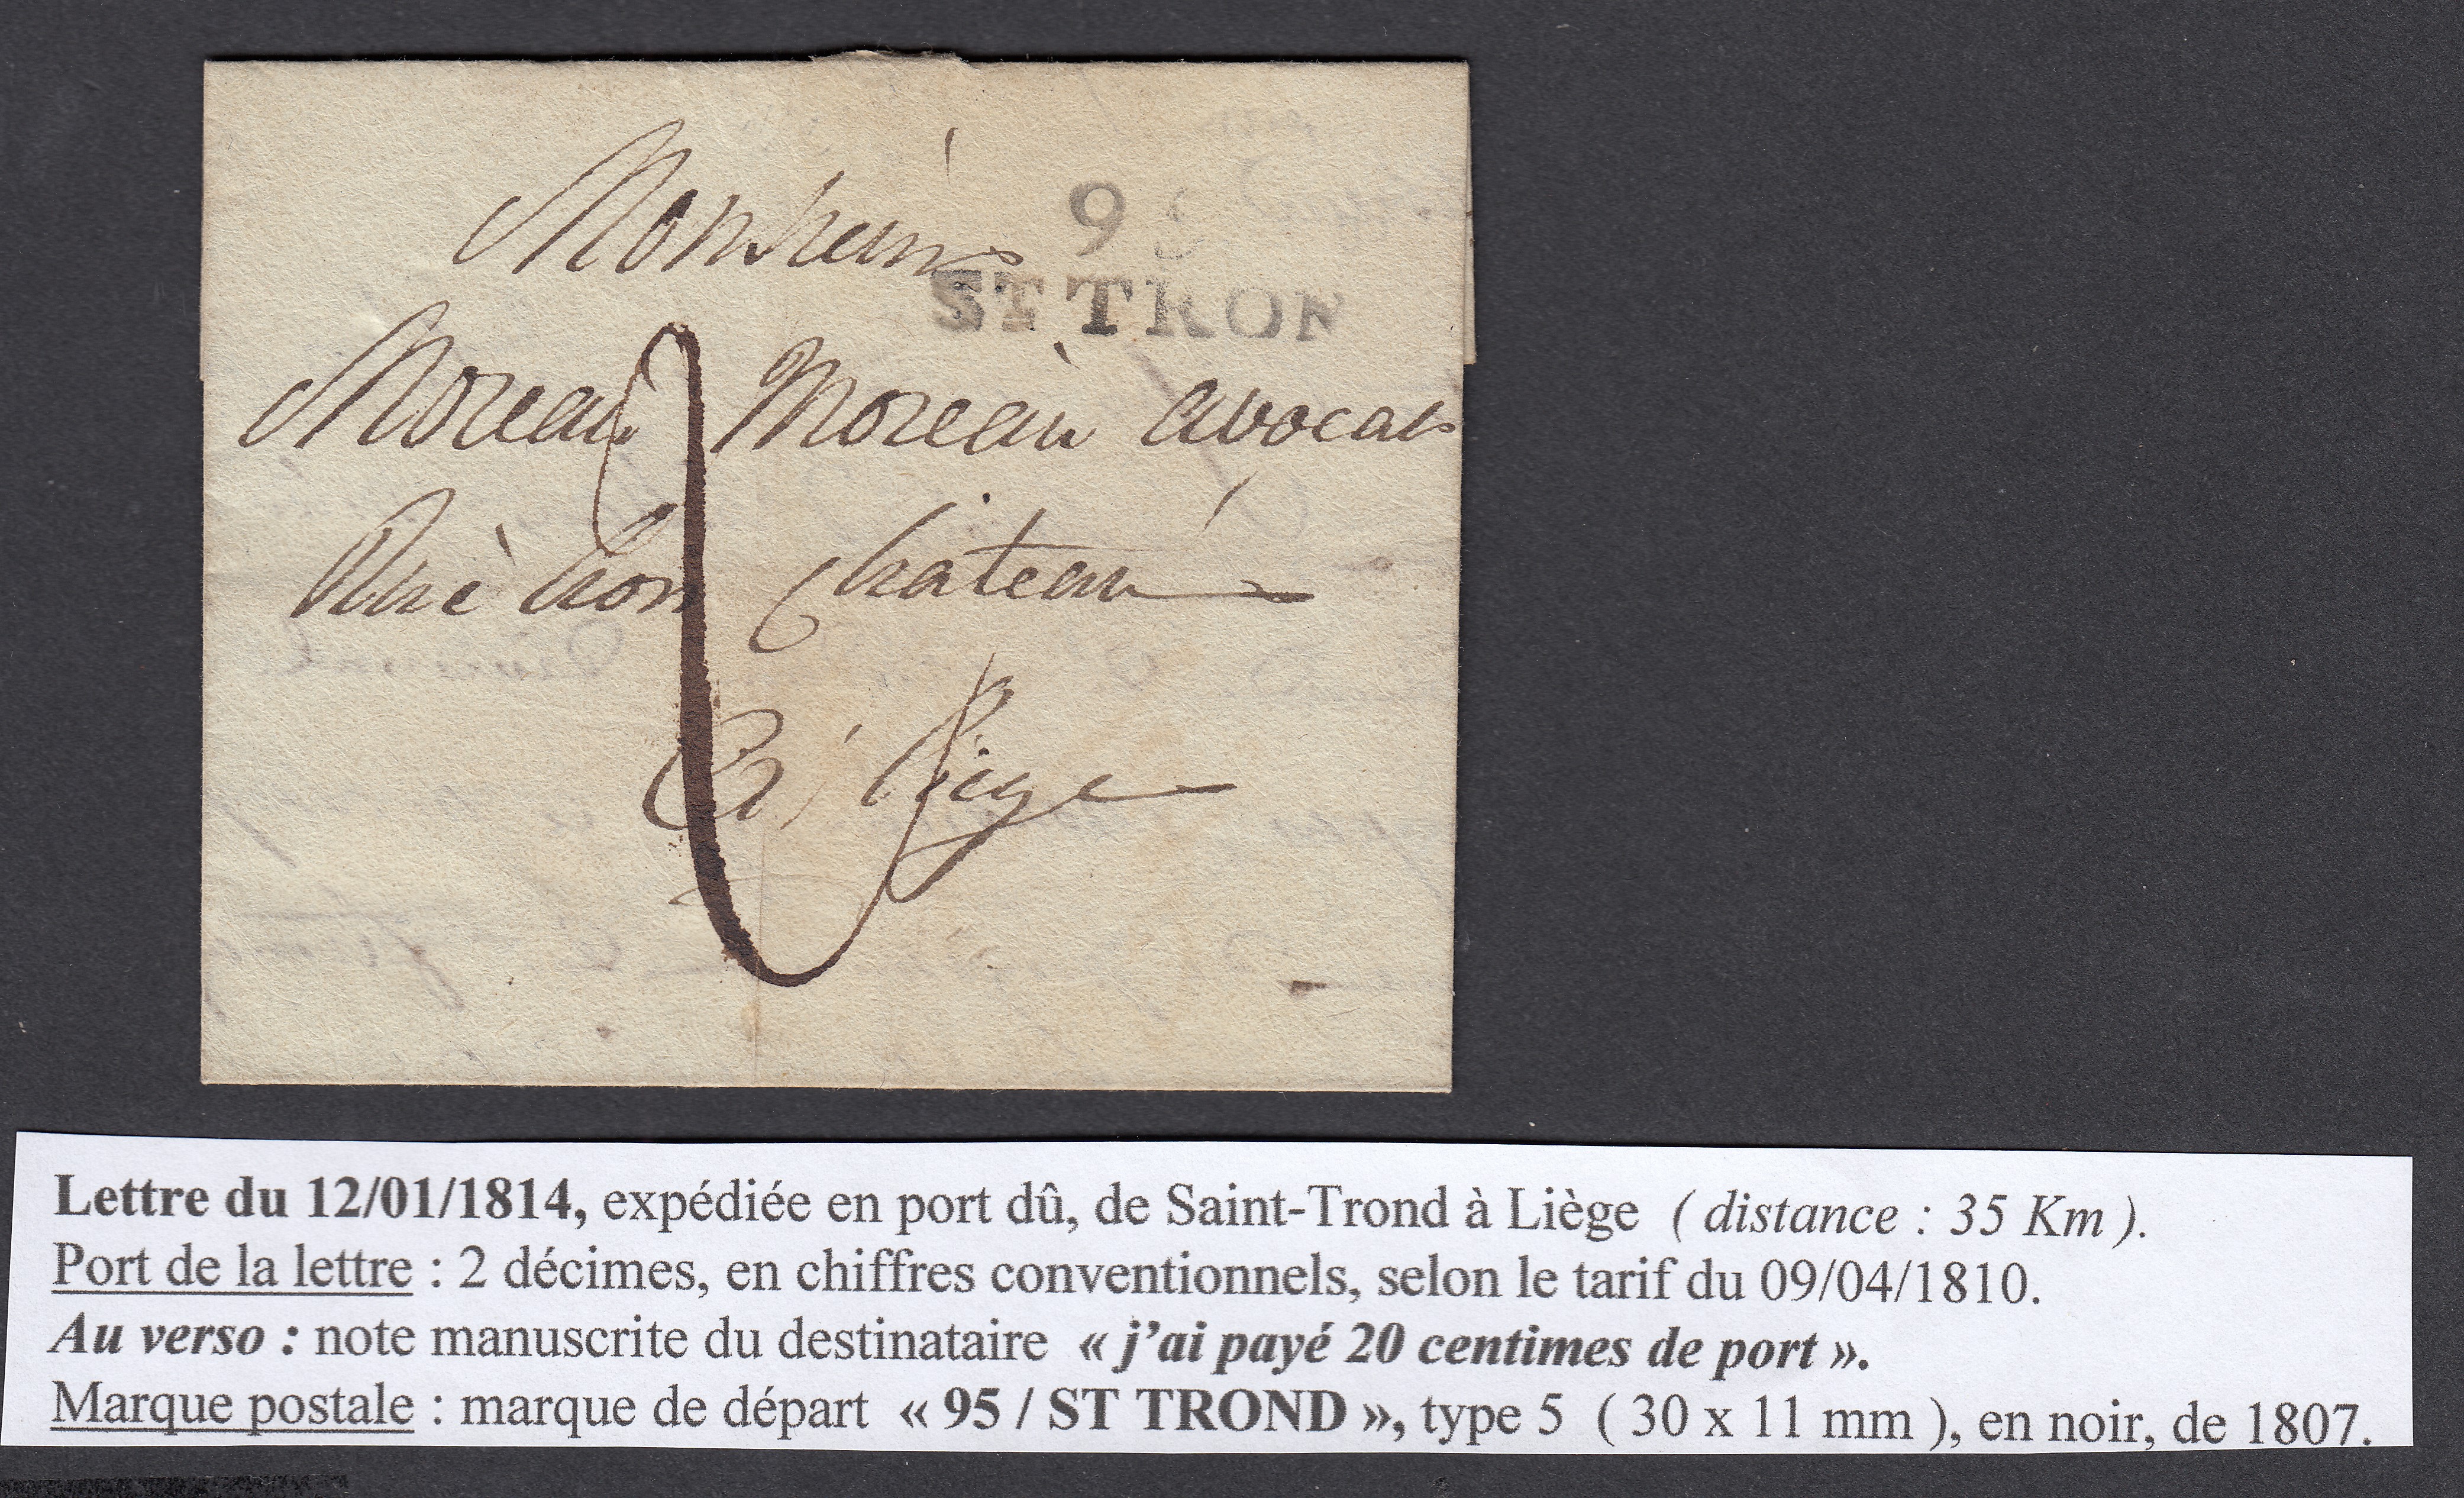 Monsieur
95
ST TRON
Moreau Moreau avocat
Ruè hor Chateau
a Liège
2
Lettre du 12/01/1814, expédiée en port dû, de Saint-Trond à Liège ( distance : 35 Km ).
Port de la lettre : 2 décimes, en chiffres conventionnels, selon le tarif du 09/04/1810.
Au verso : note manuscrite du destinataire « j’ai payé 20 centimes de port ».
Marque postale : marque de départ « 95 / ST TROND », type 5 ( 30 x 11 mm ), en noir, de 1807.